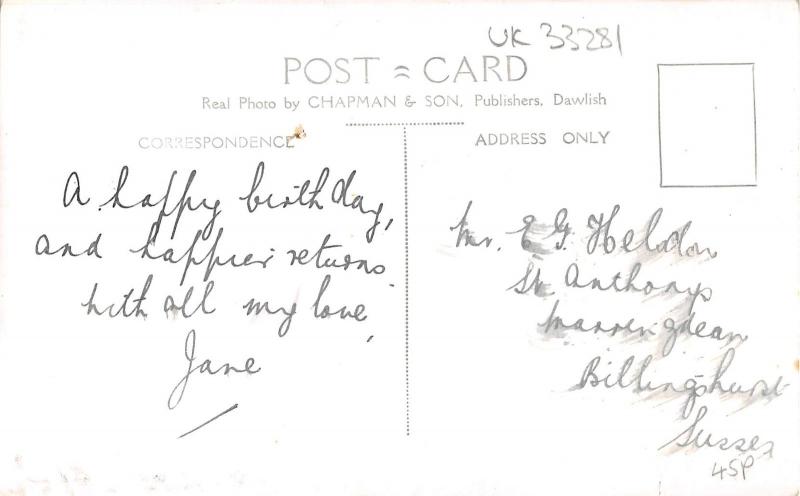 UK 33281
POST CARD
Real Photo by CHAPMAN & SON, Publishers, Dawlish
CORRESPONDENCE
ADDRESS ONLY
A happy birthday,
and happier returns
with all my love,
Jane
Mr. E G. Heldon
St Anthonys
Warrengdean
Billingshurst
Sussex
45P